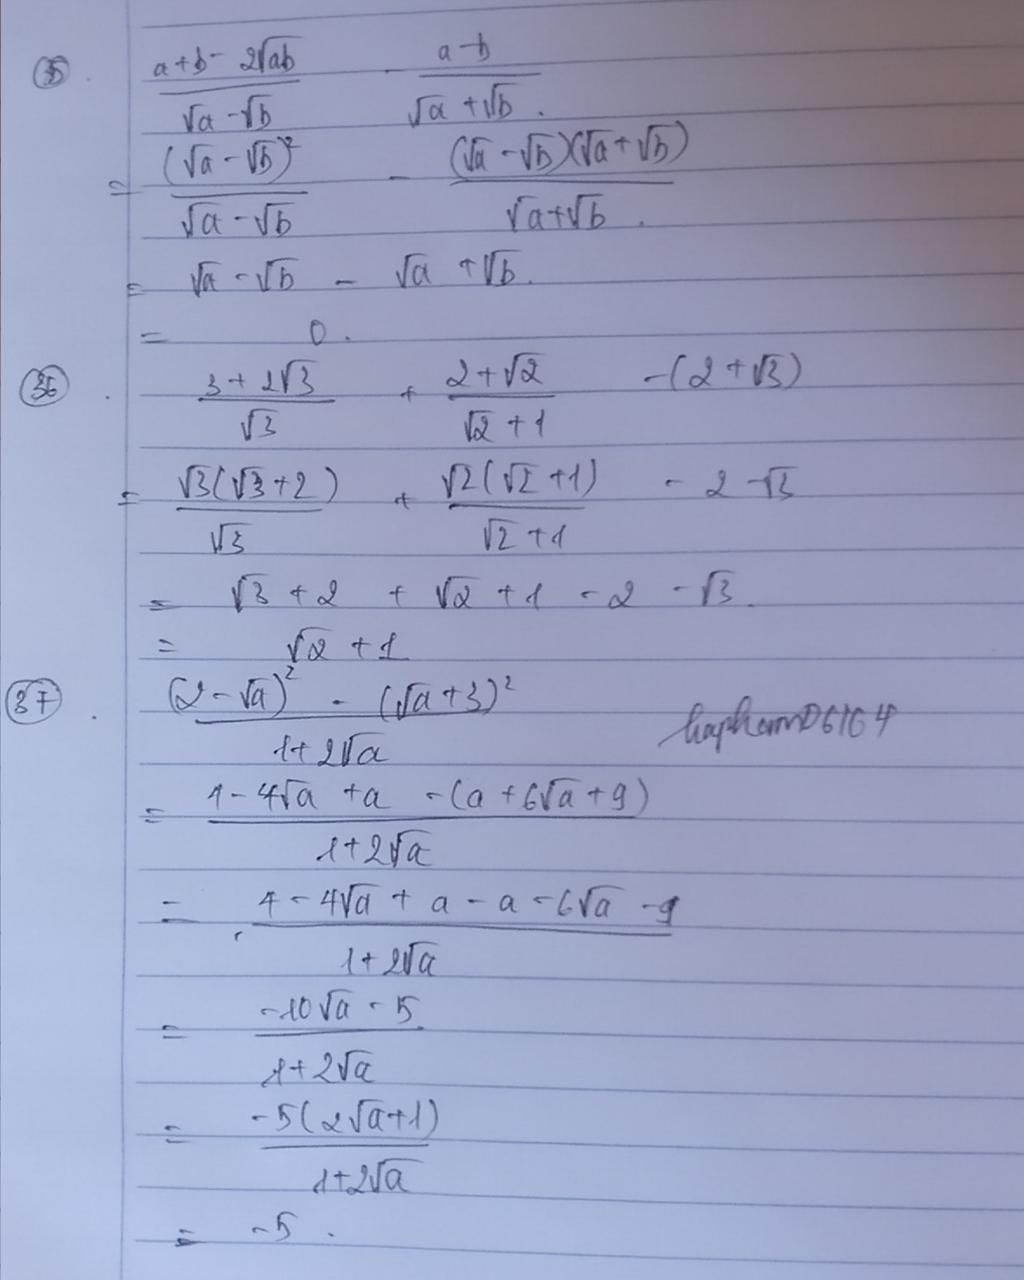 (35). (a+b- 2√ab)/(√a -√b) - (a-b)/(√a +√b).
= (√a - √b)²/(√a - √b) - (√a -√b)(√a+√b)/(√a+√b).
= √a - √b - √a +√b.
= 0.
(36). (3+2√3)/√3 + (2+√2)/(√2 + 1) -(2+√3)
= √3(√3+2)/√3 + √2(√2 +1)/(√2 +1) - 2 -√3
= √3 + 2 + √2 + 1 - 2 - √3.
= √2 + 1
(37). ((2-√a)² - (√a+3)²)/(1+2√a)
haphamD6164
= (4-4√a +a -(a+6√a+9))/(1+2√a)
= (4 - 4√a + a - a - 6√a - 9)/(1+2√a)
= (-10√a - 5)/(1+2√a)
= -5(2√a+1)/(1+2√a)
= -5.